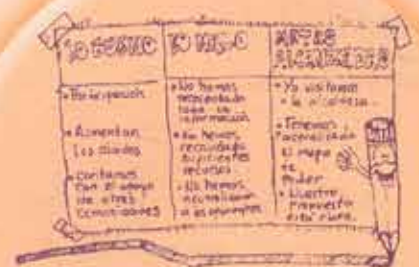 LO BUENO
LO MALO
METAS
ALCANZADAS
• Participación
• Aumentan
los aliados
• Contamos
con el apoyo
de otras
comunidades
• No hemos
recopilado
toda la
información
• No hemos
recaudado
suficientes
recursos
• No hemos
neutralizado
a los oponentes
• Ya visitamos
a la alcaldesa
• Tenemos
actualizado
el mapa
de
poder
• Nuestra
propuesta
está clara